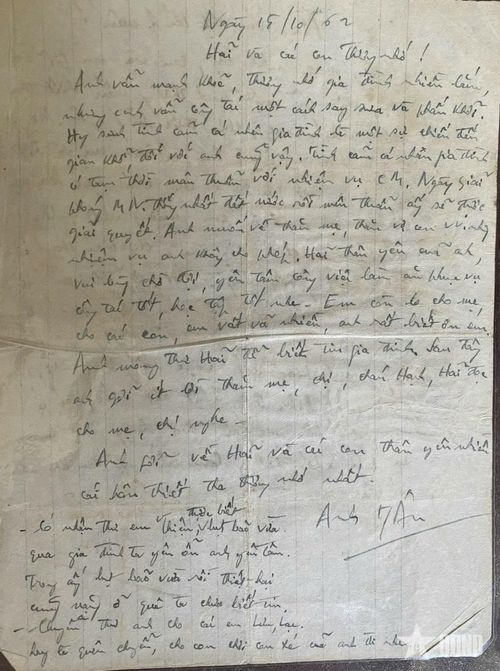 Ngày 15/10/62
Hải và các con thương nhớ!
Anh vẫn mạnh khoẻ, thương nhớ gia đình nhiều lắm,
nhưng anh vẫn công tác một cách say sưa và phấn khởi.
Hy sinh tình cảm cá nhân gia đình là một sự chiến đấu
gian khổ đối với anh cũng vậy. Tình cảm cá nhân gia đình
có tạm thời mâu thuẫn với nhiệm vụ C.M. Ngày giải
phóng M.N. thống nhất đất nước rồi mâu thuẫn ấy sẽ được
giải quyết. Anh muốn về thăm mẹ, thăm vợ con nhưng
nhiệm vụ anh không cho phép. Hải thân yêu của anh,
vui lòng chờ đợi, yên tâm công việc làm ăn phục vụ
công tác tốt, học tập tốt nhe. Em còn lo cho mẹ,
cho các con, em vất vả nhiều, anh rất biết ơn em.
Anh mong thư Hải để biết tin gia đình. Sau đây
anh gởi ít lời thăm mẹ, chị, cháu Hạnh, Hải đọc
cho mẹ, chị nghe -
Anh gởi về Hải và các con thân yêu nhiều
cái hôn thiết tha thương nhớ nhất.
Anh
- Có nhận thư em được biết lụt bão vừa
qua gia đình ta yên ổn anh yên tâm.
Trong ấy lụt bão vừa rồi thiệt hại
cũng nặng ở quê ta chưa biết tin.
- Chuyển thư anh cho các em
hay ta quên chuyển, cho con chơi con xé của anh đi nhe